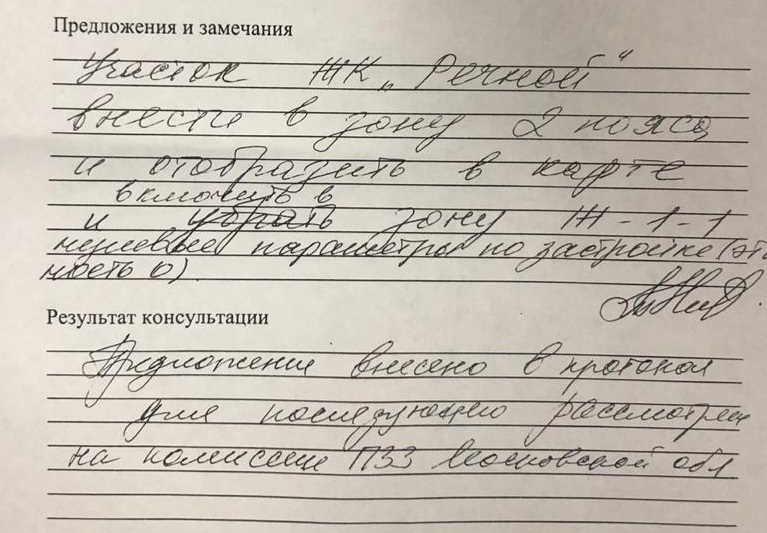 Предложения и замечания
Участок ЖК „Речной“
внести в зону 2 пояса
и отобразить в карте
включить в
и убрать зону Ж-1-1
нулевые параметры по застройке (эта
ность 0)
Результат консультации
Предложение внесено в протокол
для последующего рассмотрен
на комиссии ПЗЗ Московской обл